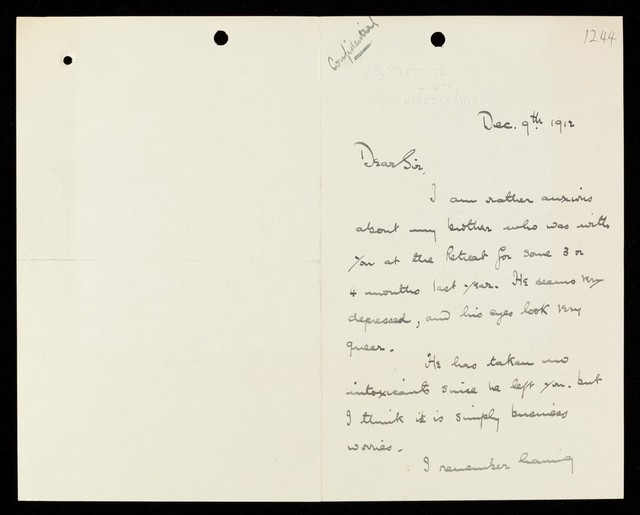 Confidential
1244
Dec. 9th 1912
Dear Sir,
I am rather anxious
about my brother who was with
you at the Retreat for some 3 or
4 months last year. He seems very
depressed, and his eyes look very
queer.
He has taken no
intoxicants since he left you. but
I think it is simply business
worries.
I remember having